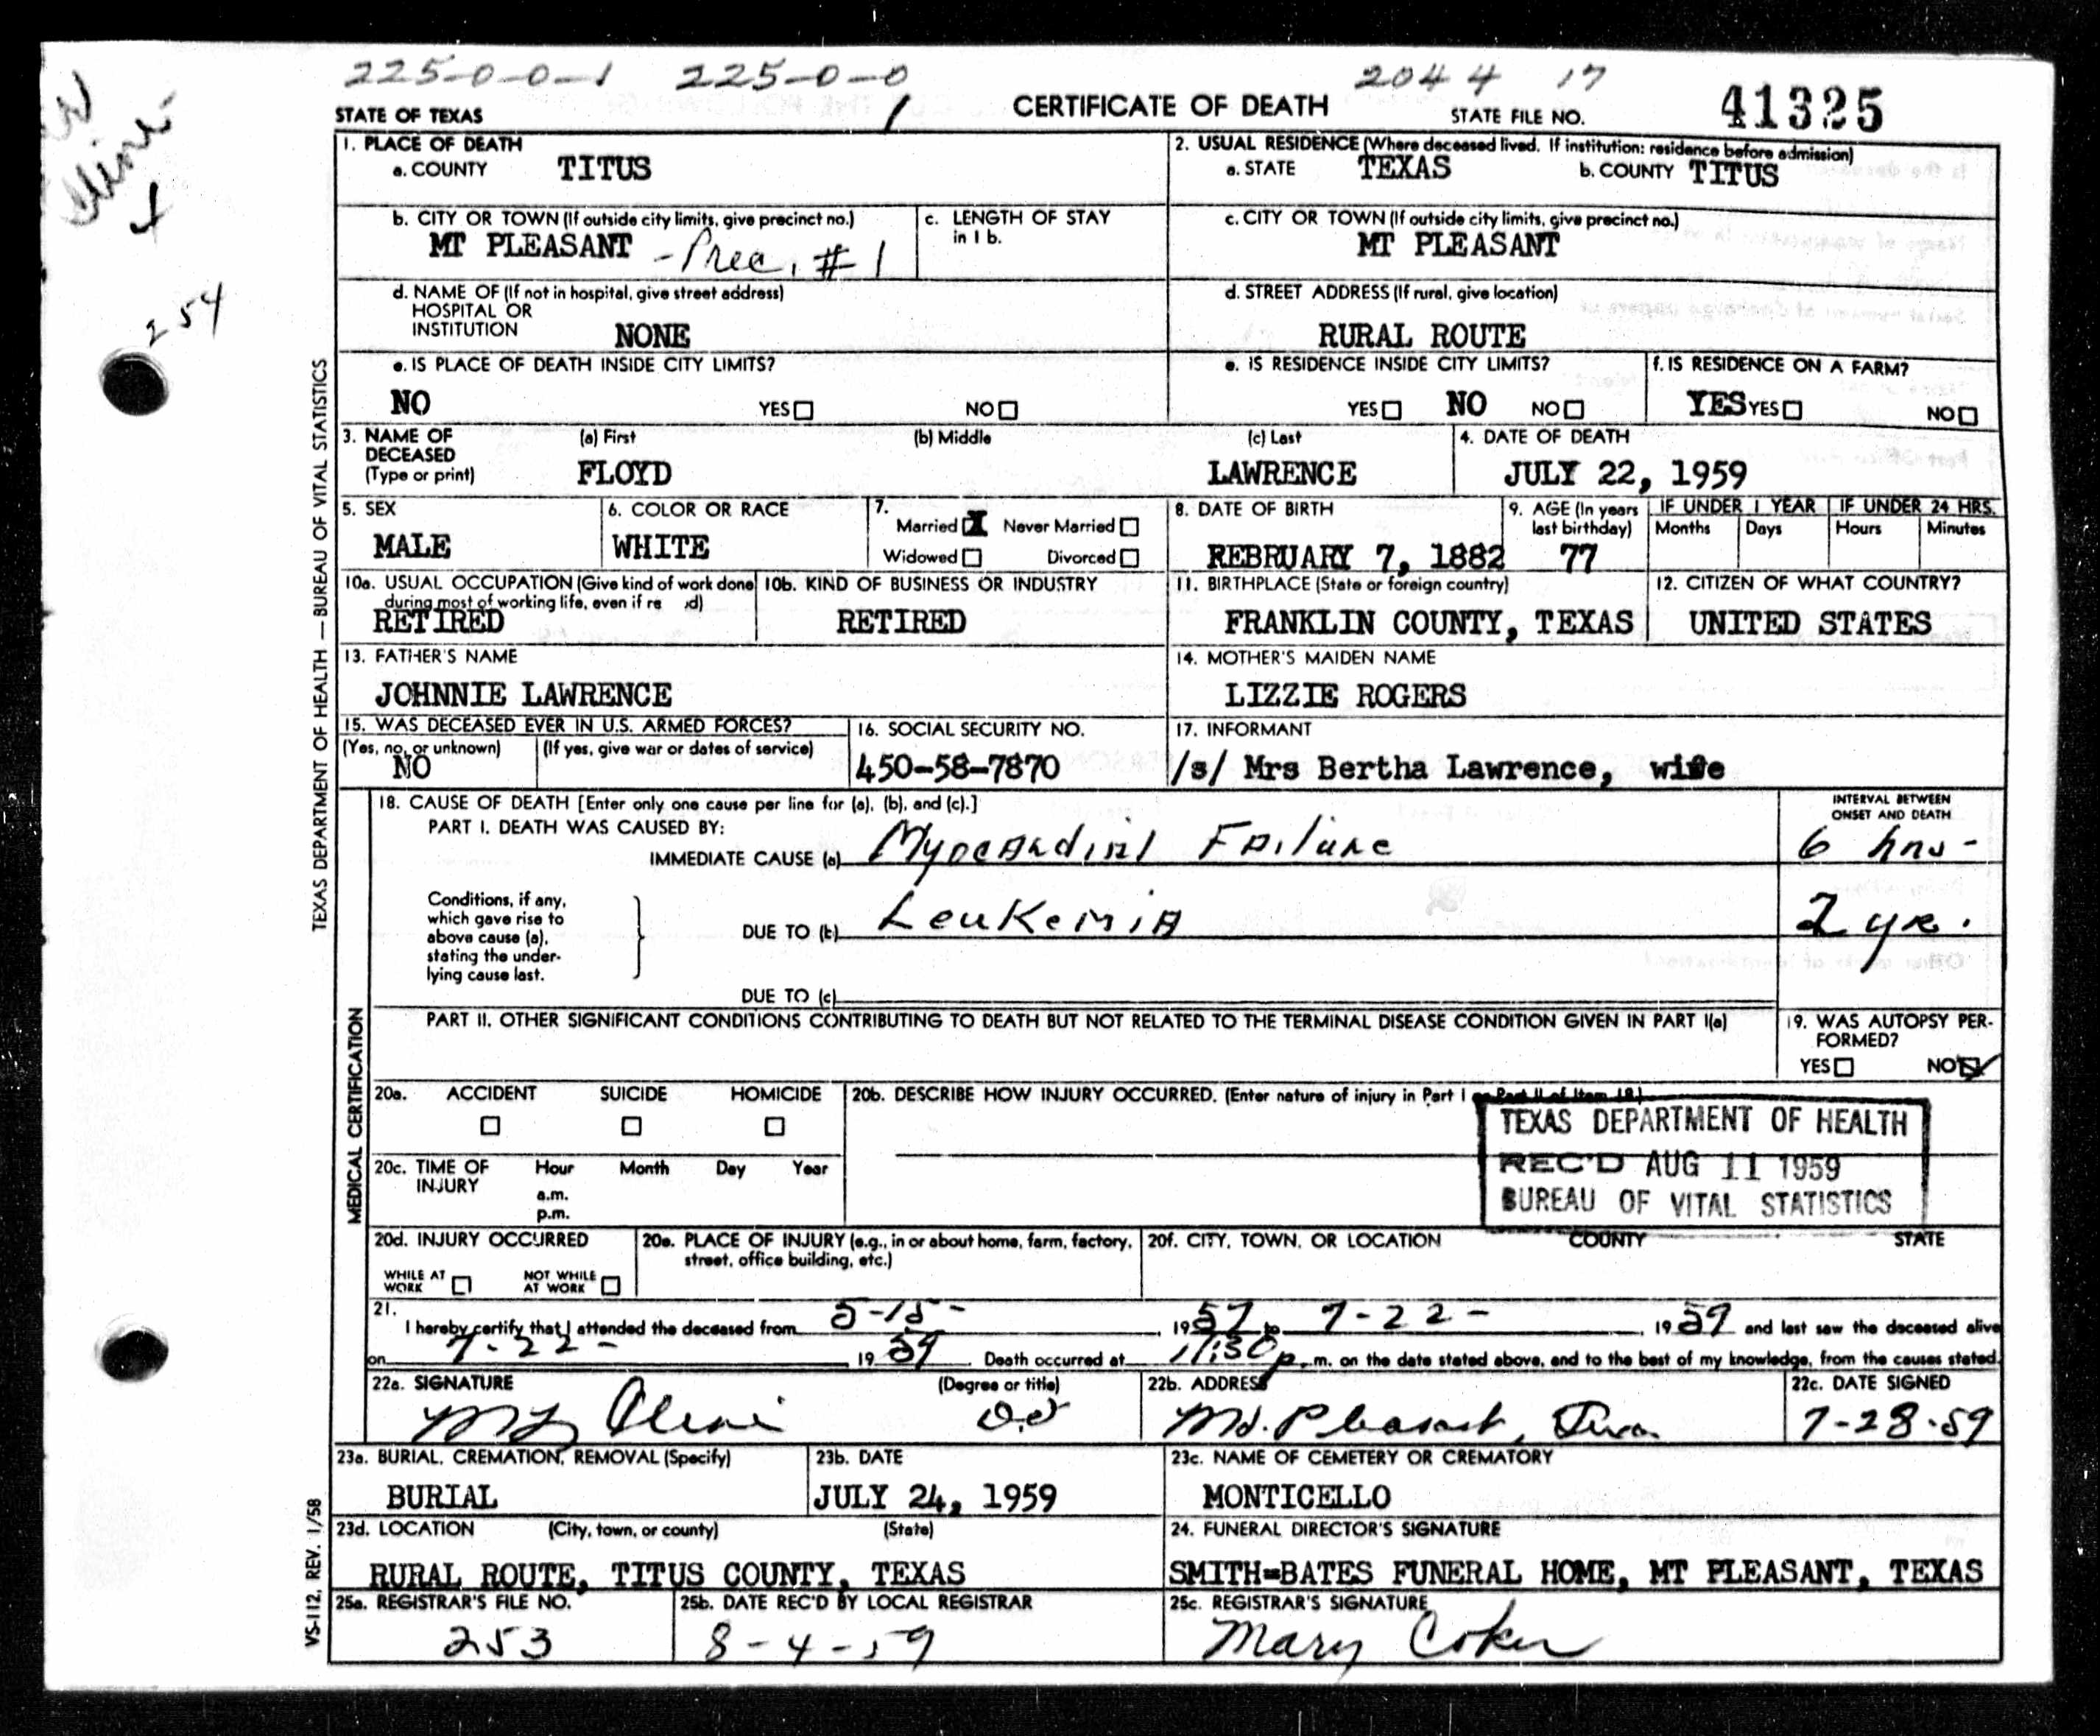 225-0-0-1 225-0-0 2044 17
STATE OF TEXAS / CERTIFICATE OF DEATH STATE FILE NO. 41325
1. PLACE OF DEATH
a. COUNTY TITUS
2. USUAL RESIDENCE (Where deceased lived. If institution: residence before admission)
a. STATE TEXAS b. COUNTY TITUS
b. CITY OR TOWN (If outside city limits, give precinct no.)
MT PLEASANT - Prec. # 1
c. LENGTH OF STAY
in 1 b.
c. CITY OR TOWN (If outside city limits, give precinct no.)
MT PLEASANT
254
d. NAME OF (If not in hospital, give street address)
HOSPITAL OR
INSTITUTION NONE
d. STREET ADDRESS (If rural, give location)
RURAL ROUTE
e. IS PLACE OF DEATH INSIDE CITY LIMITS?
NO YES NO
e. IS RESIDENCE INSIDE CITY LIMITS?
YES NO NO
f. IS RESIDENCE ON A FARM?
YES YES NO
3. NAME OF
DECEASED
(Type or print)
(a) First (b) Middle (c) Last
FLOYD LAWRENCE
4. DATE OF DEATH
JULY 22, 1959
5. SEX
MALE
6. COLOR OR RACE
WHITE
7.
Married X Never Married
Widowed Divorced
8. DATE OF BIRTH
REBRUARY 7, 1882
9. AGE (In years
last birthday)
77
IF UNDER 1 YEAR
Months Days
IF UNDER 24 HRS.
Hours Minutes
10a. USUAL OCCUPATION (Give kind of work done
during most of working life, even if re d)
RETIRED
10b. KIND OF BUSINESS OR INDUSTRY
RETIRED
11. BIRTHPLACE (State or foreign country)
FRANKLIN COUNTY, TEXAS
12. CITIZEN OF WHAT COUNTRY?
UNITED STATES
13. FATHER'S NAME
JOHNNIE LAWRENCE
14. MOTHER'S MAIDEN NAME
LIZZIE ROGERS
15. WAS DECEASED EVER IN U.S. ARMED FORCES?
(Yes, no, or unknown) (If yes, give war or dates of service)
NO
16. SOCIAL SECURITY NO.
450-58-7870
17. INFORMANT
/s/ Mrs Bertha Lawrence, wife
TEXAS DEPARTMENT OF HEALTH — BUREAU OF VITAL STATISTICS
MEDICAL CERTIFICATION
18. CAUSE OF DEATH [Enter only one cause per line for (a), (b), and (c).]
PART I. DEATH WAS CAUSED BY:
IMMEDIATE CAUSE (a) Myocardial Failure
INTERVAL BETWEEN
ONSET AND DEATH
6 hrs-
Conditions, if any,
which gave rise to
above cause (a),
stating the under-
lying cause last.
DUE TO (b) Leukemia 2 yr.
DUE TO (c)
PART II. OTHER SIGNIFICANT CONDITIONS CONTRIBUTING TO DEATH BUT NOT RELATED TO THE TERMINAL DISEASE CONDITION GIVEN IN PART I(a)
19. WAS AUTOPSY PER-
FORMED?
YES NO
20a. ACCIDENT SUICIDE HOMICIDE
20b. DESCRIBE HOW INJURY OCCURRED. (Enter nature of injury in Part I or Part II of Item 18)
TEXAS DEPARTMENT OF HEALTH
REC'D AUG 11 1959
BUREAU OF VITAL STATISTICS
20c. TIME OF
INJURY
Hour Month Day Year
a.m.
p.m.
20d. INJURY OCCURRED
WHILE AT
WORK
NOT WHILE
AT WORK
20e. PLACE OF INJURY (e.g., in or about home, farm, factory,
street, office building, etc.)
20f. CITY, TOWN, OR LOCATION COUNTY STATE
21.
I hereby certify that I attended the deceased from 5-15- , 1957 to 7-22- , 1959 and last saw the deceased alive
on 7-22- , 1959. Death occurred at 11:30 p.m. on the date stated above, and to the best of my knowledge, from the causes stated.
22a. SIGNATURE (Degree or title)
D.O.
22b. ADDRESS
Mt. Pleasant, Texas
22c. DATE SIGNED
7-28-59
23a. BURIAL, CREMATION, REMOVAL (Specify)
BURIAL
23b. DATE
JULY 24, 1959
23c. NAME OF CEMETERY OR CREMATORY
MONTICELLO
23d. LOCATION (City, town, or county) (State)
RURAL ROUTE, TITUS COUNTY, TEXAS
24. FUNERAL DIRECTOR'S SIGNATURE
SMITH=BATES FUNERAL HOME, MT PLEASANT, TEXAS
25a. REGISTRAR'S FILE NO.
253
25b. DATE REC'D BY LOCAL REGISTRAR
8-4-59
25c. REGISTRAR'S SIGNATURE
Mary Coker
VS-112, REV. 1/58